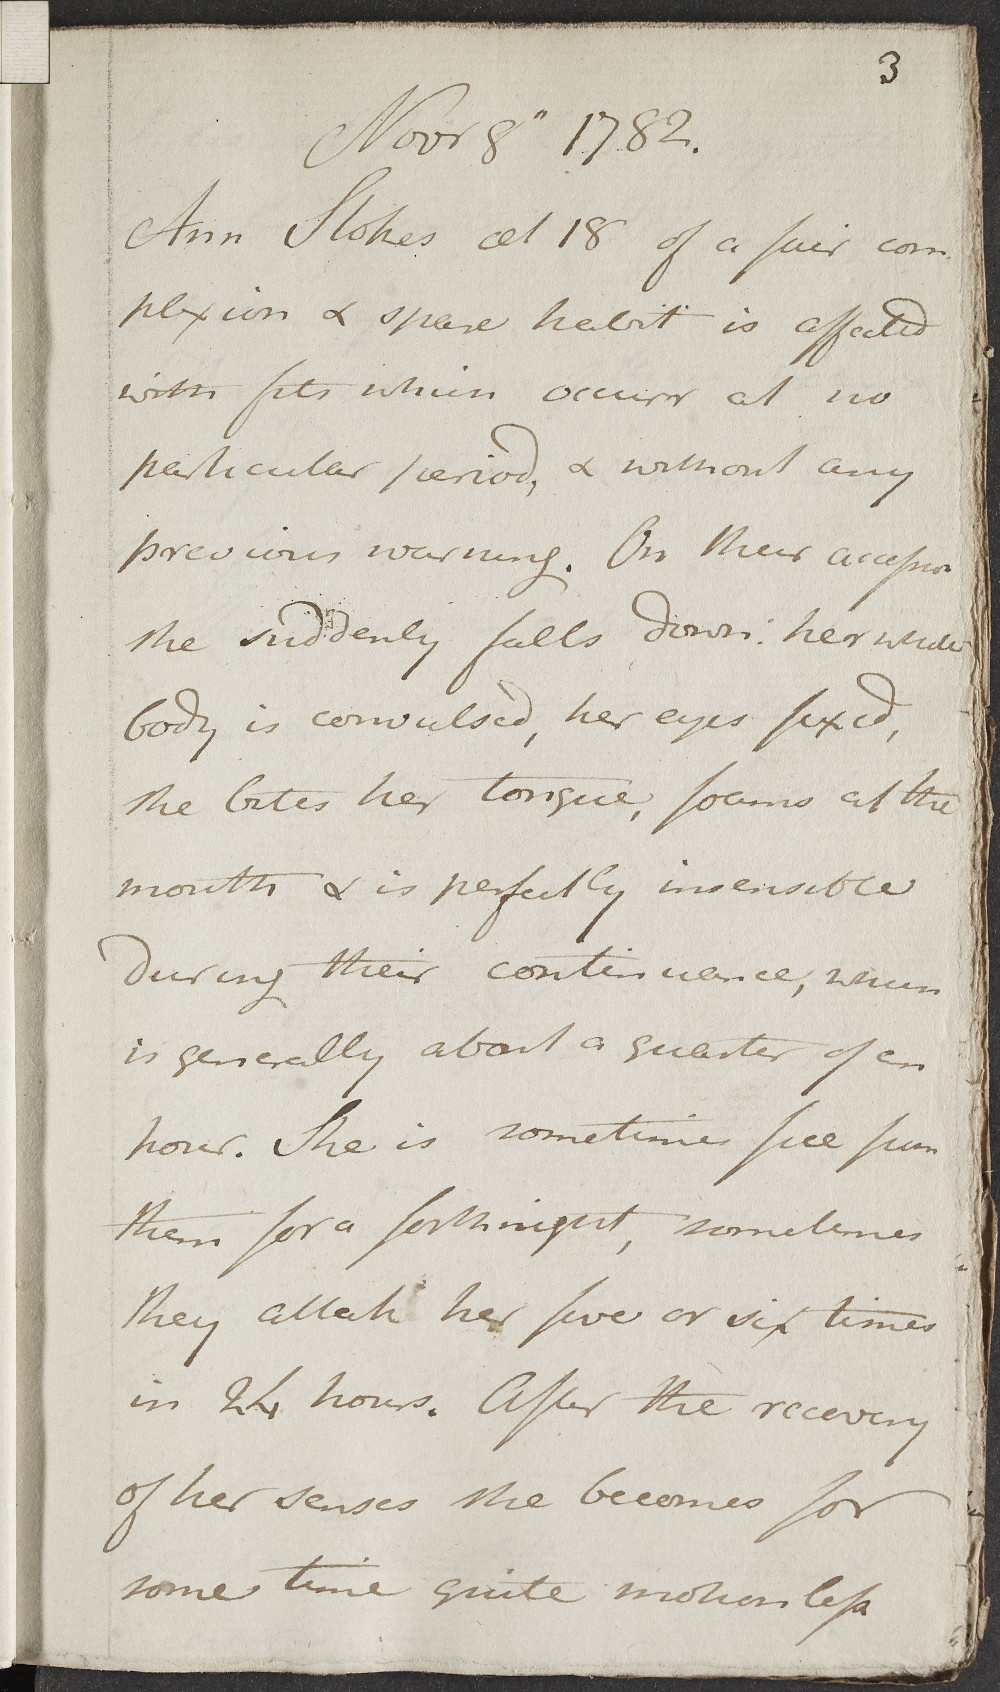 3
Novr 8" 1782.
Ann Stokes æt 18 of a fair com
plexion & spare habit is affected
with fits which occurr at no
particular period, & without any
previous warning. On their accession
she suddenly falls down: her whole
body is convulsed, her eyes fixed,
she bites her tongue, foams at the
mouth & is perfectly insensible
during their continuance, which
is generally about a quarter of an
hour. She is sometimes free from
them for a forthnight, sometimes
they attack her five or six times
in 24 hours. After the recovery
of her senses she becomes for
some time quite motionless